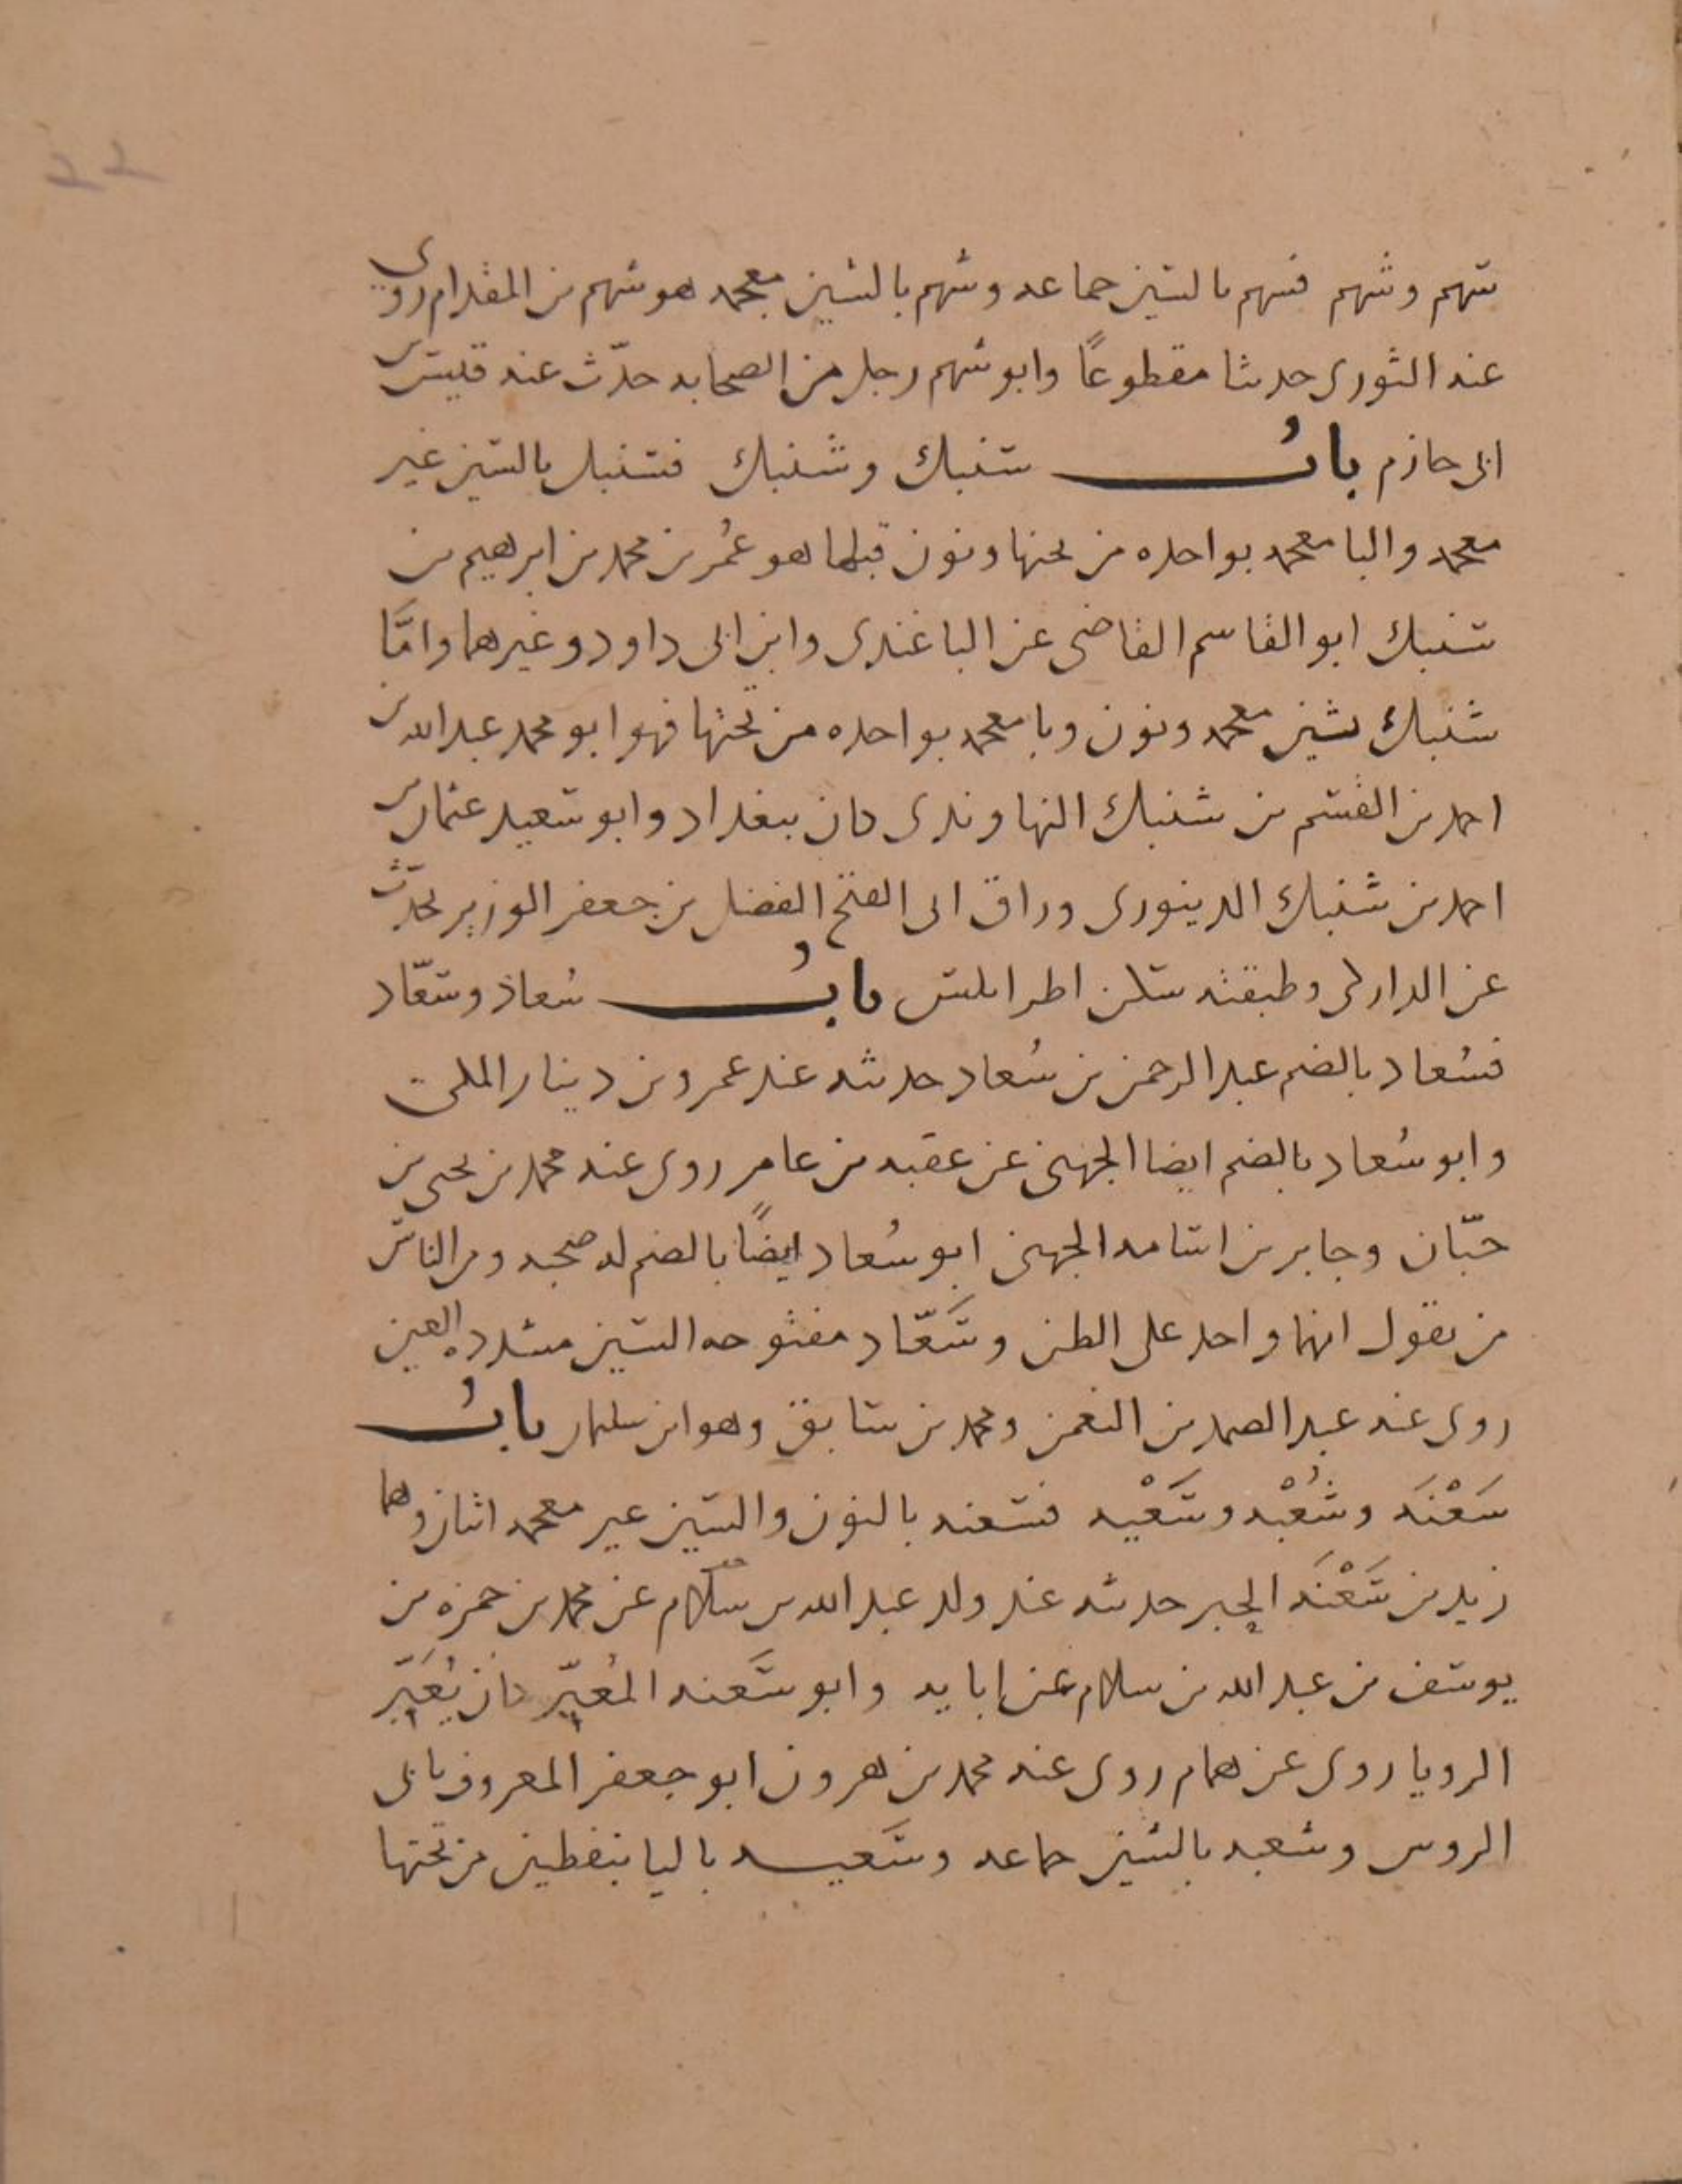 ٢٢
سهم وشهم فسهم بالسين جماعه وشهم بالشين معجمه هو شهم بن المقدام روى
عنه الثورى حديثا مقطوعًا وابو شهم رجل من الصحابه حدّث عنه قيس بن
ابى حازم بابُ سنبك وشنبك فسنبك بالسين غير
معجمه والبا معجمه بواحده من تحتها ونون قبلها هو عُمر بن محمد بن ابرهيم بن
سنبك ابو القاسم القاضى عن الباغندى وابن ابى داود وغيرهما وامّا
شنبك بشين معجمه ونون وبا معجمه بواحده من تحتها فهو ابو محمد عبد الله بن
احمد بن القسم بن شنبك النهاوندى كان ببغداد وابو سعيد عثمان بن
احمد بن شنبك الدينورى وراق ابى الفتح الفضل بن جعفر الوزير يحدّث
عن الداركى وطبقته سكن اطرابلس بابُ سُعاد وسعّاد
فسُعاد بالضم عبد الرحمن بن سُعاد حديثه عند عمرو بن دينار المكى
وابو سُعاد بالضم ايضا الجهنى عن عقبه بن عامر روى عنه محمد بن يحيى بن
حبّان وجابر بن اسامه الجهنى ابو سُعاد ايضًا بالضم له صحبه ومن الناس
من يقول انهما واحد على الظن وسَعّاد مفتوحه السين مشدده العين
روى عنه عبد الصمد بن النعمن ومحمد بن سابق وهو ابن سليمان بابُ
سَعْنَه وشُعْبه وسَعْيه فسعنه بالنون والسين غير معجمه اثنان وهما
زيد بن سَعْنَه الحبر حديثه عند ولد عبد الله بن سلام عن محمد بن حمزه بن
يوسف بن عبد الله بن سلام عن ابايه وابو سَعنه المُعبّر كان يُعَبّر
الرويا روى عن همام روى عنه محمد بن هرون ابو جعفر المعروف بابى
الروس وشعبه بالشين جماعه وسَعيه باليا بنقطين من تحتها